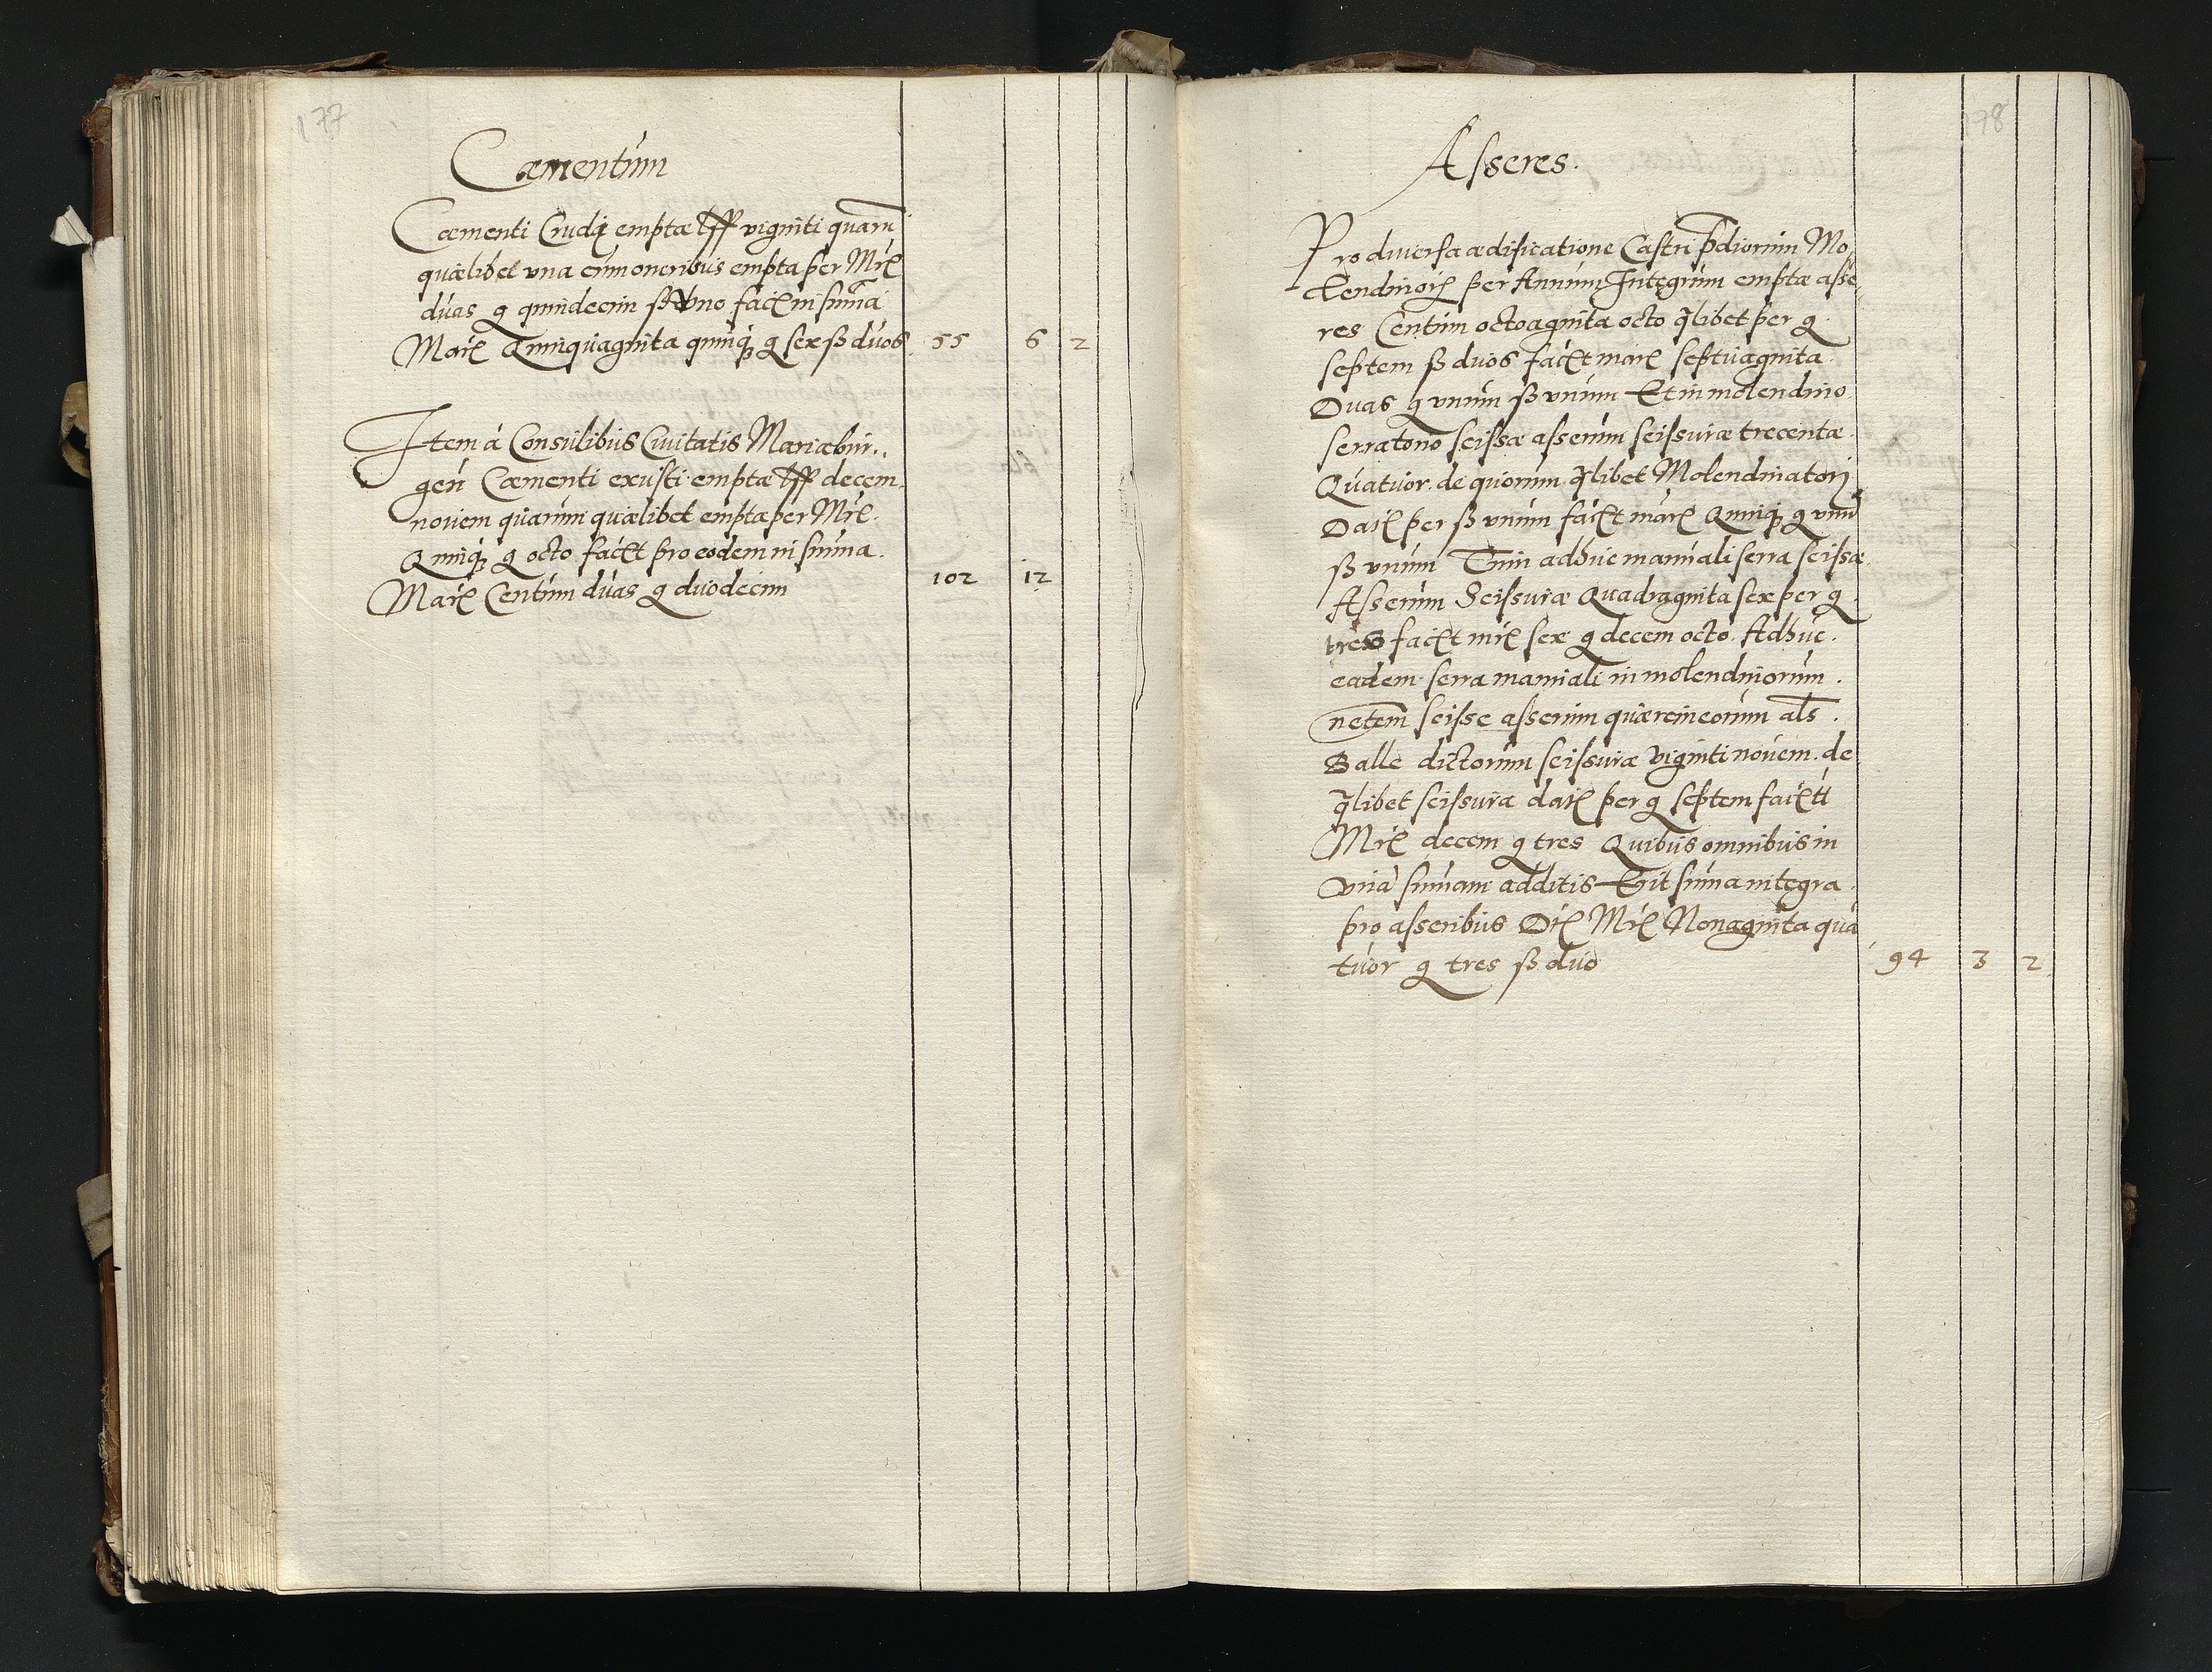 177
Cæmentum
Cæmenti Crudi emptæ lff viginti quarū
quælibet vna cum oneribus empta per Mrc
duas g quindecim ß vno facit in sum̄a
Marc Quinquaginta quinq; g sex ß duos 55 6 2
Item á Consulibus Ciuitatis Mariæbur..
gen̄ Cæmenti exusti emptæ lff decem
nouem quarum quælibet emptæ per Mrc
Quinq; g octo facit pro eodem in summa
Marc Centum duas g duodecim 102 12
178
Asseres.
Pro diuersa ædificatione Castri p̄diorum Mo,
lendinorū per Annum Integrum emptæ asse,
res Centum octoaginta octo q̄libet per g
septem ß duos facit marc septuaginta
Duas g vnum ß vnum Et in molendino
serratorio scissæ asserum scissuræ trecentæ
Quatuor de quorum q̄libet Molendinatori
Datc per ß vnum facit marc Quinq; g vnū
ß vnum Tum adhuc manuali serra scissæ
Asserum Scissuræ Quadraginta sex per g
tres facit mrc sex g decem octo Adhuc
eadem serra manuali in molendinorum
netem scisse asserum quærcineorum als
Balle dictorum scissuræ viginti nouem de
q̄libet scissura datc per g septem facit
Mrc decem g tres Quibus omnibus in
vnā sum̄am additis Erit sum̄a integra
pro asseribus Mrc Nonaginta qua
tuor g tres ß duo 94 3 2